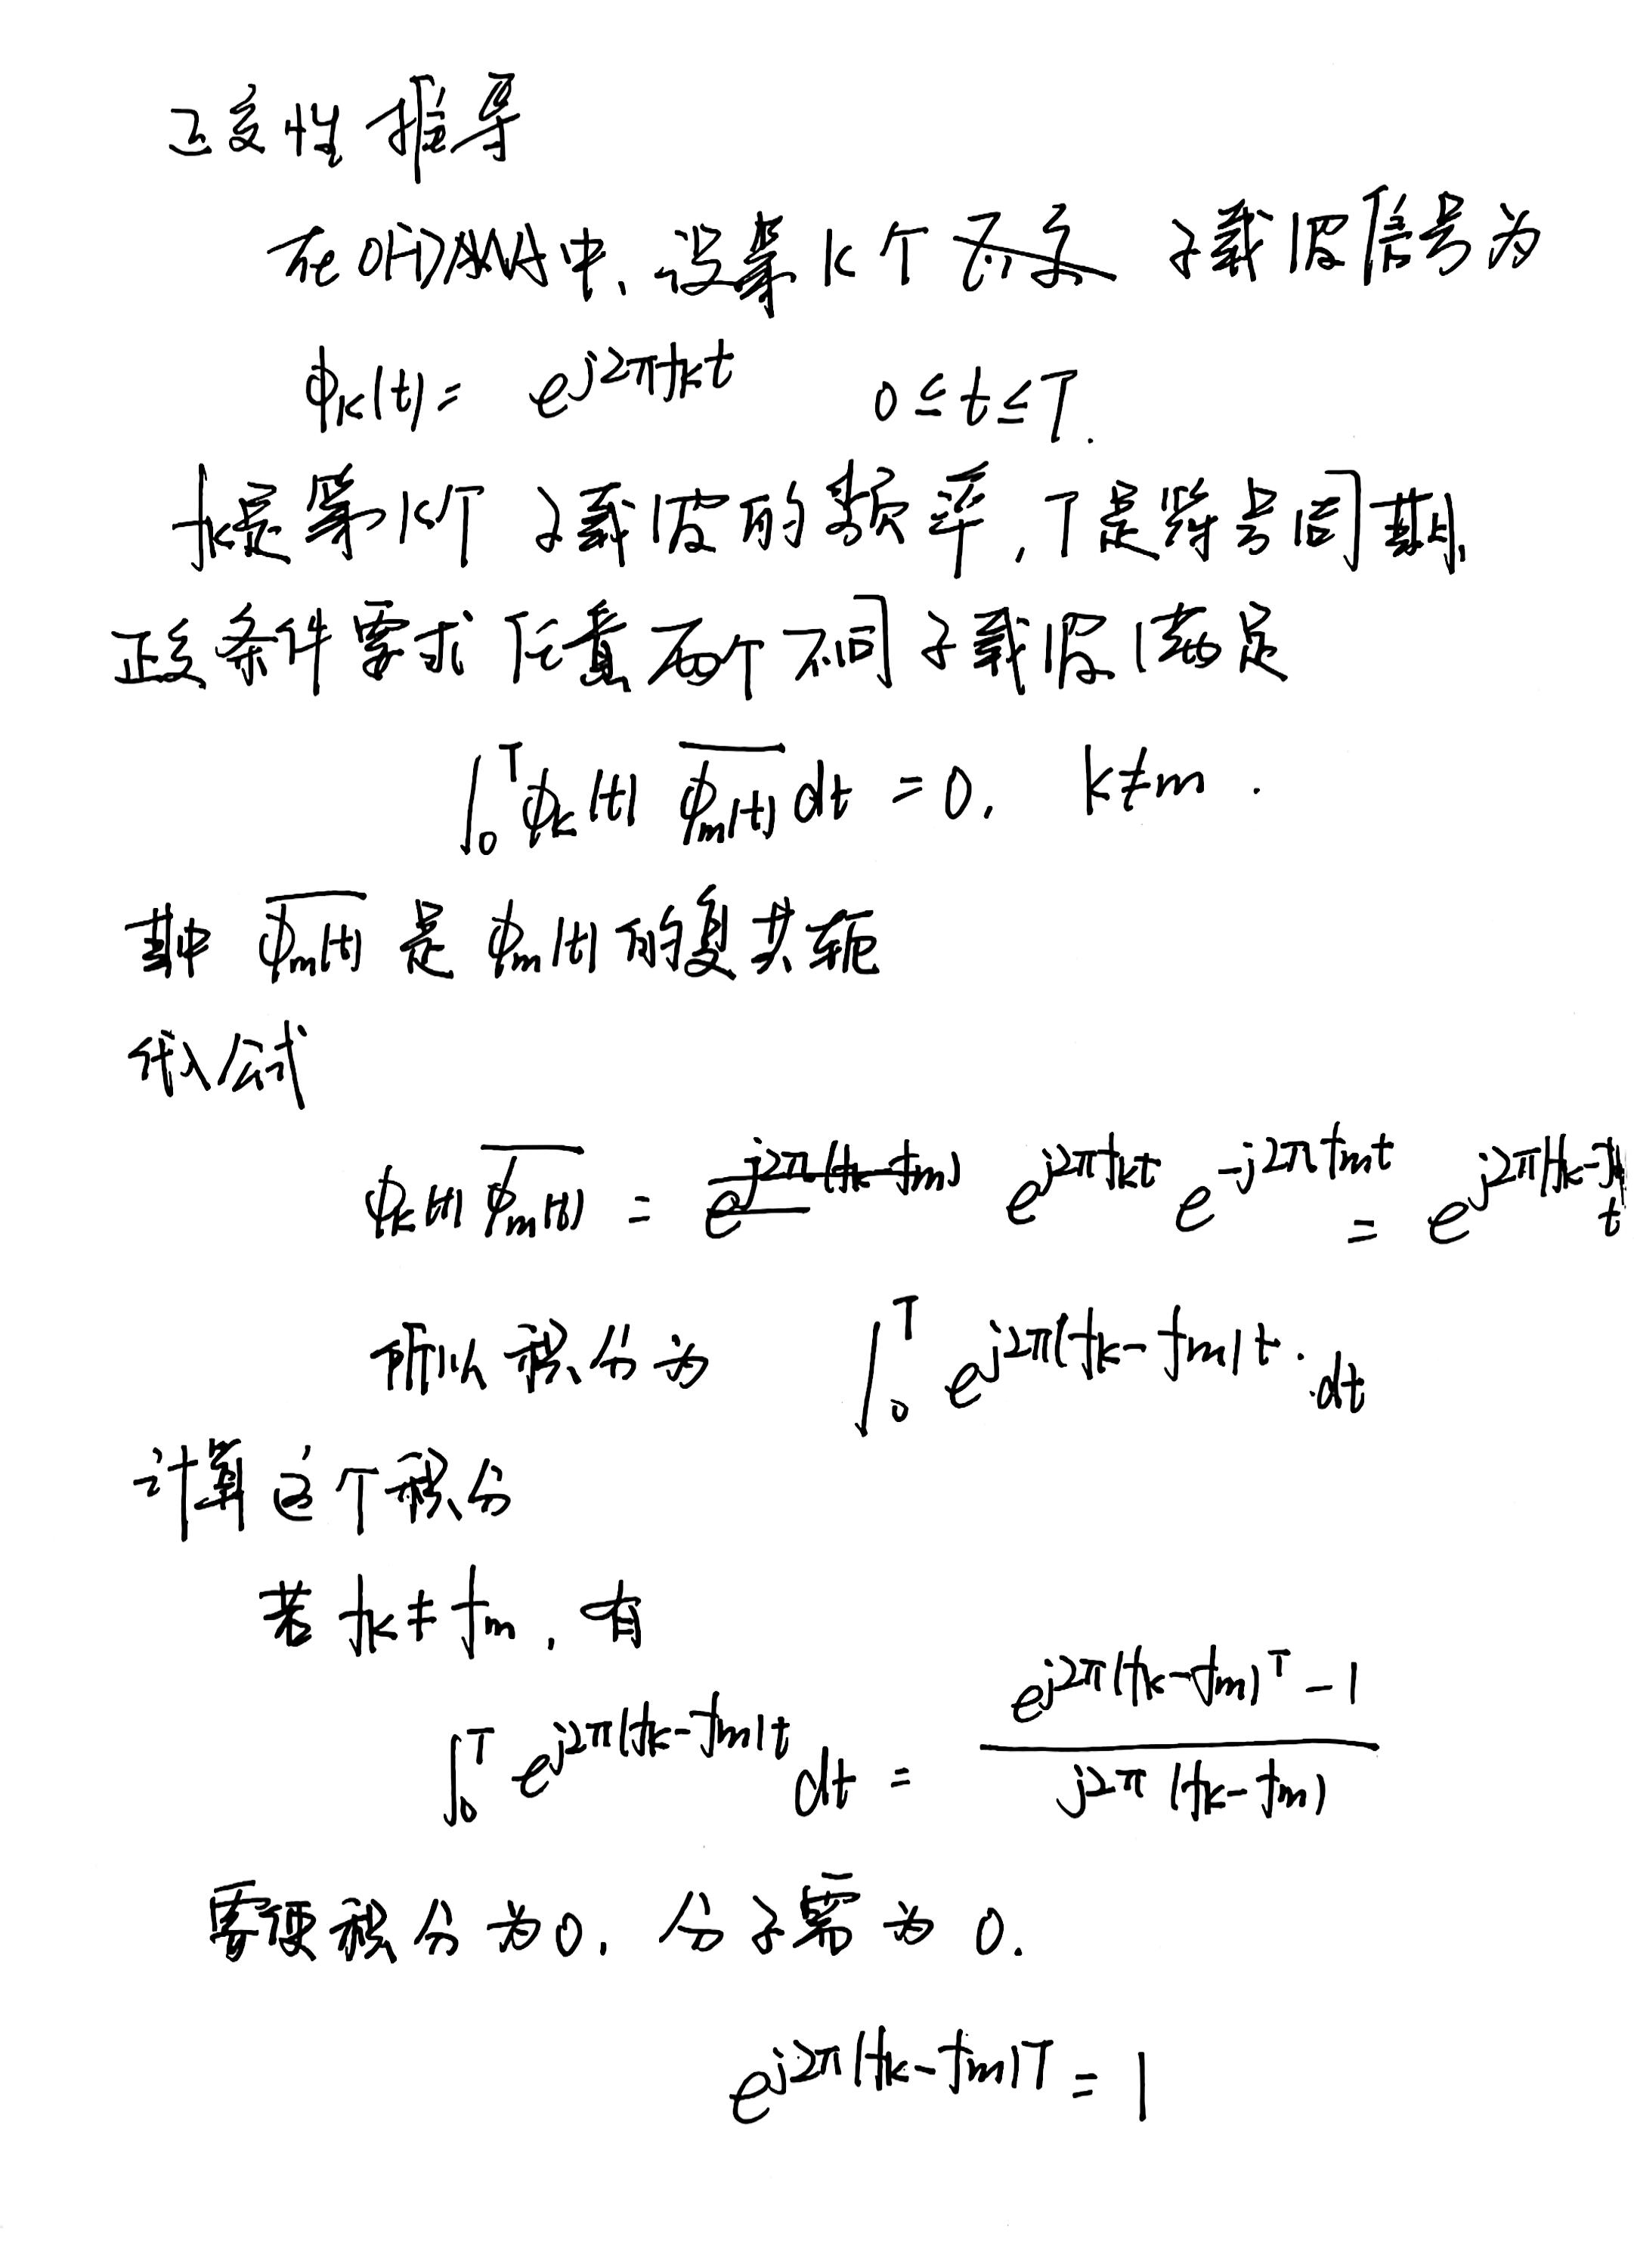 正交性推导
在OFDMA中,设第k个 子载波信号为
ϕk(t)= e^{j2πfkt} 0≤t≤T.
fk是第k个子载波的频率,T是符号周期,
正交条件需求任意两个不同子载波满足
∫_0^T ϕk(t) \overline{ϕm(t)} dt = 0, k≠m.
其中 \overline{ϕm(t)} 是 ϕm(t) 的复共轭
代入公式
ϕk(t) \overline{ϕm(t)} = e^{j2πfkt} e^{-j2πfmt} = e^{j2π(fk-fm)t}
所以积分为 ∫_0^T e^{j2π(fk-fm)t}·dt
计算这个积分
若 fk≠fm, 有
∫_0^T e^{j2π(fk-fm)t} dt = \frac{e^{j2π(fk-fm)T}-1}{j2π(fk-fm)}
需使积分为0, 分子需为0.
e^{j2π(fk-fm)T} = 1